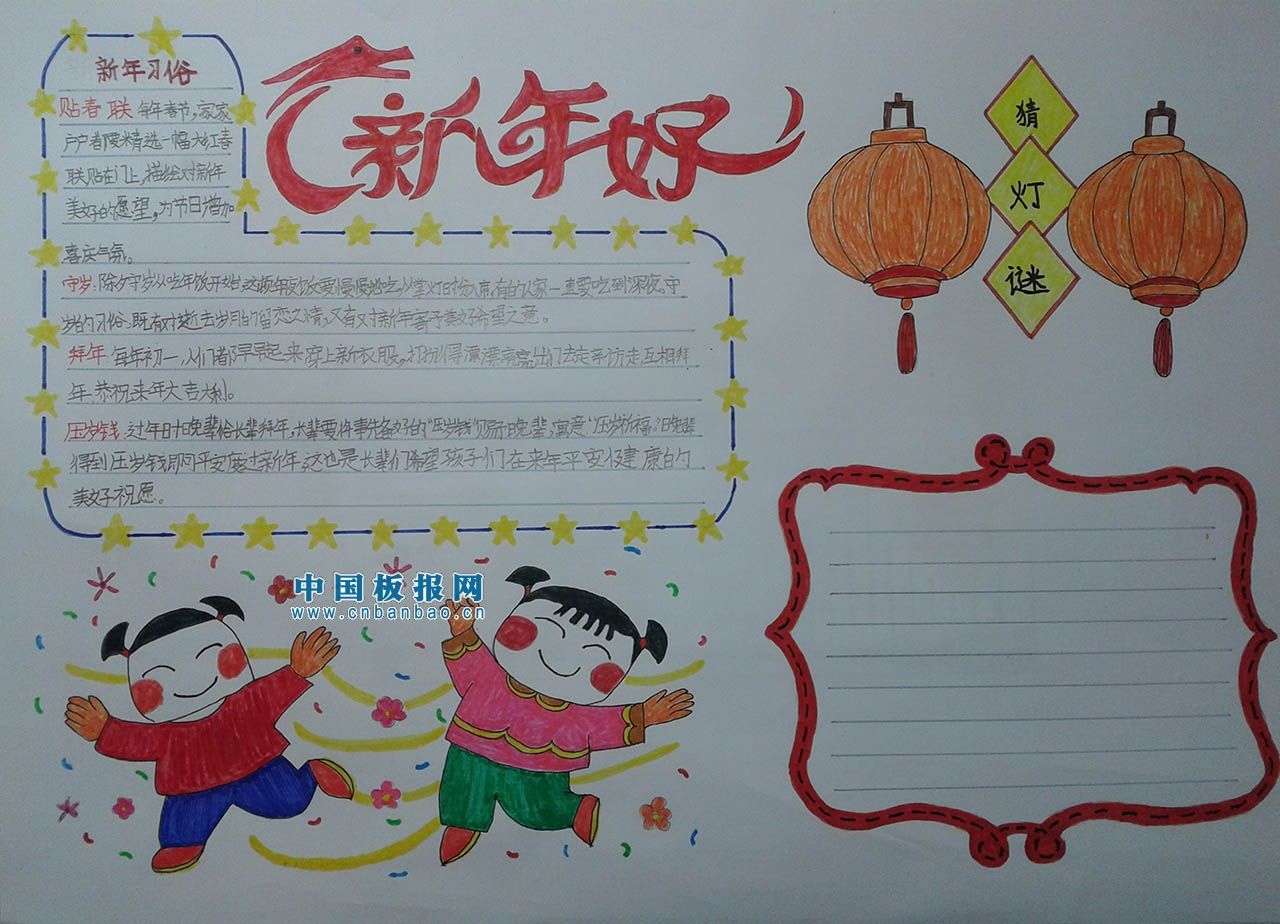 新年习俗
贴春联 每年春节，家家
户户都要精选一幅大红春
联贴在门上，描绘对新年
美好的愿望，为节日增加
喜庆气氛。
守岁：除夕守岁从吃年饭开始，这顿年夜饭要慢慢地吃，从掌灯时分入席，有的人家一直要吃到深夜。守
岁的习俗，既有对逝去岁月的留恋之情，又有对新年寄予美好希望之意。
拜年 每年初一，人们都早早起来，穿上新衣服。打扮得漂漂亮亮出门去走亲访走互相拜
年，恭祝来年大吉大利。
压岁钱：过年时晚辈给长辈拜年，长辈要将事先备好的“压岁钱”赐于晚辈，寓意“压岁祈福。”晚辈
得到压岁钱即可平安度过新年，这也是长辈们希望孩子们在来年平安健康的
美好祝愿。
新年好
猜
灯
谜
中国板报网
www.cnbanbao.cn